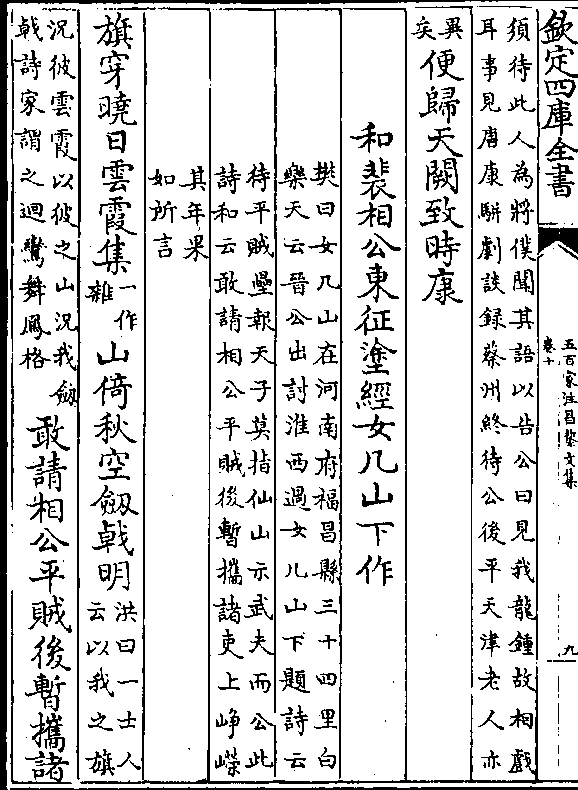 欽定四庫全書
五百家注昌黎文集
卷十
九
須待此人為將僕聞其語以告公曰見我龍鍾故相戲
耳事見唐康駢劇談録蔡州終待公後平天津老人亦
異
矣
便歸天闕致時康
和裴相公東征塗經女几山下作
樊曰女几山在河南府福昌縣三十四里白
樂天云晉公出討淮西過女几山下題詩云
待平賊壘報天子莫指仙山示武夫而公此
詩和云敢請相公平賊後暫攜諸吏上峥嶸
其年果
如所言
旗穿曉日雲霞集
一作
雜
山倚秋空劔戟明
洪曰一士人
云以我之旗
況彼雲霞以彼之山況我劔
戟詩家謂之迴鸞舞鳳格
敢請相公平賊後暫攜諸